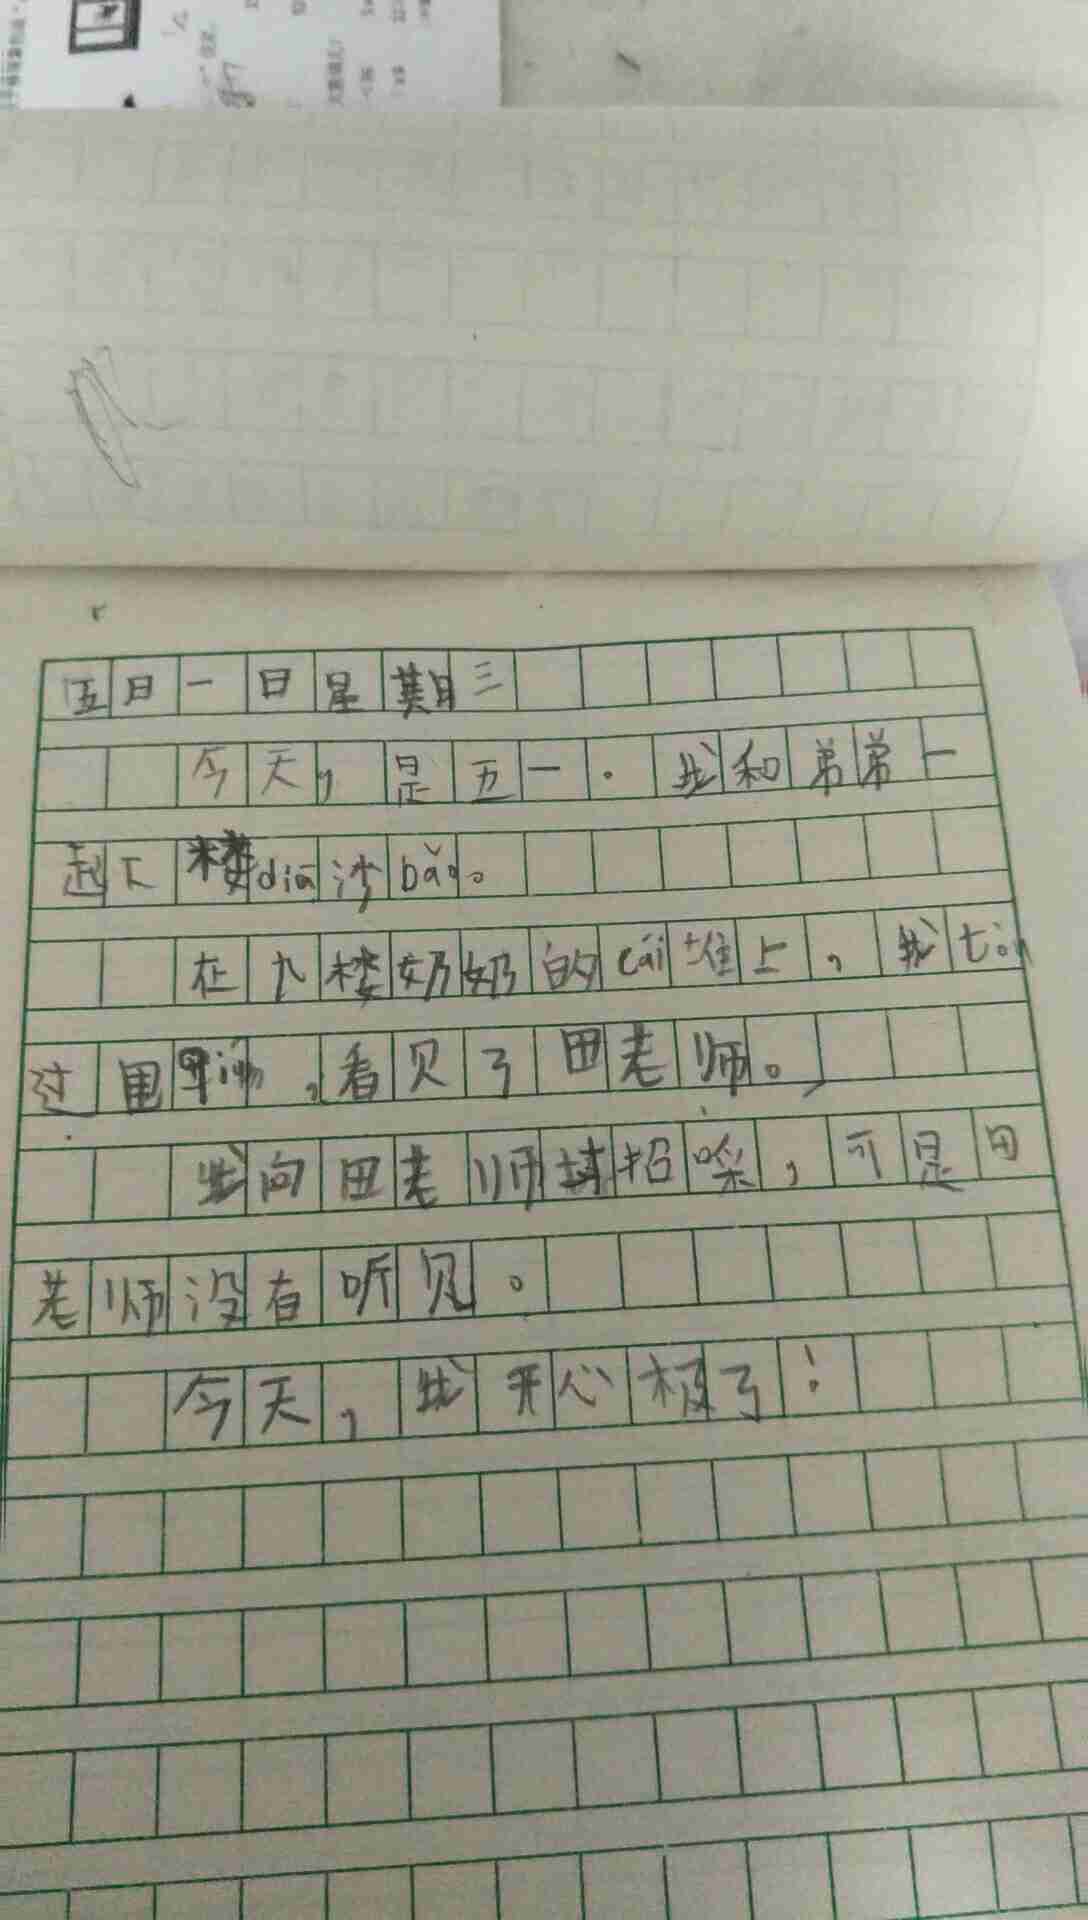 五日一日星期三
今天，是五一。我和弟弟一
起下楼diū沙bǎo。
在九楼奶奶的cái堆上，我tòu
过电，看见了田老师。
我向田老师打招呼，可是田
老师没有听见。
今天，我开心极了！